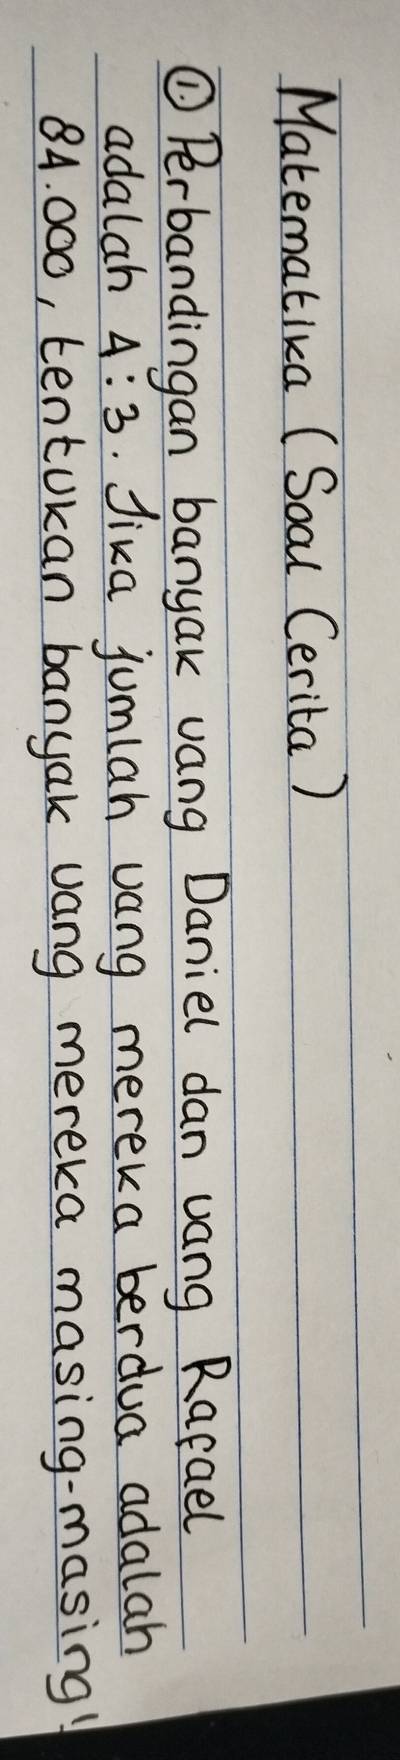 Matematika (Soal Cerita)
①. Perbandingan banyak uang Daniel dan uang Rafael
adalah 4:3. Jika jumlah uang mereka berdua adalah
84.000, tentukan banyak uang mereka masing-masing!